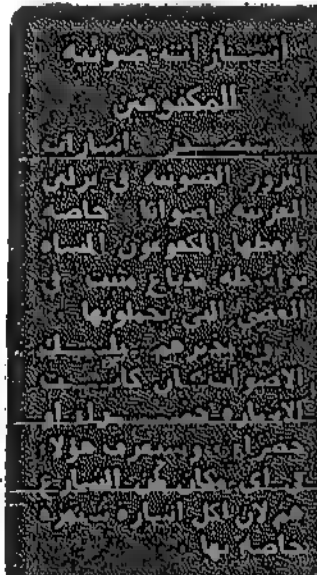 اشارات صوتية
للمكفوفين
ستصدر اشارات
المرور الضوئية في برلين
الغربية اصواتا خاصة
يلتقطها المكفوفون المشاة
بواسطة مذياع مثبت في
العصي التي يحملونها
الاصوات كانت
خضراء وسيعرف هؤلاء
في اي مكان الشارع
هم لان لكل اشارة
خاصة بها